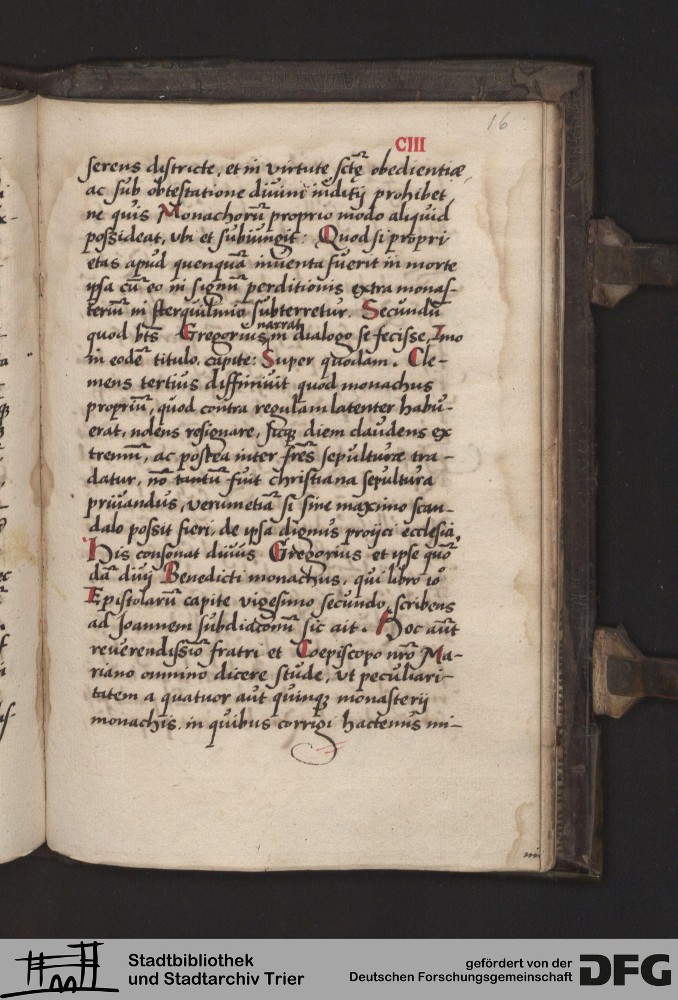 16
CIII
serens districte, et in virtute sctę obedientiæ,
ac sub obtestatione divini iuditij prohibet,
ne quis Monachorū proprio modo aliquid
possideat, vbi et subiungit: Quod si propri
etas apud quenquā inventa fuerit in morte
ipsa cū eo in signū perditionis extra monas-
teriū in sterquilinio subterretur. Secundū
quod btūs Gregorius in dialogo se fecisse, Imo
narrat
in eodē titulo, capite: Super quodam. Cle-
mens tertius diffinivit quod monachus
propriū, quod contra regulam latenter habu-
erat, nolens resignare, sicqꝫ diem claudens ex
tremū, ac postea inter frēs sepulturæ tra-
datur, nō tantū fuit christiana sepultura
privandus, verumetiā si sine maximo scan-
dalo possit fieri, de ipsa dignus proijci ecclesia,
His consonat divus Gregorius et ipse quō
dā divij Benedicti monachus, qui libro io
Epistolarū capite vigesimo secundo, scribens
ad Joannem subdiaconū sic ait. Hoc aūt
reverendissīo fratri et Coepiscopo nrō Ma-
riano omnino dicere stude, vt peculiari-
tatem a quatuor aut quinqꝫ monasterij
monachis, in quibus corrigi hactenus mi-
Stadtbibliothek
und Stadtarchiv Trier
gefördert von der
Deutschen Forschungsgemeinschaft
DFG